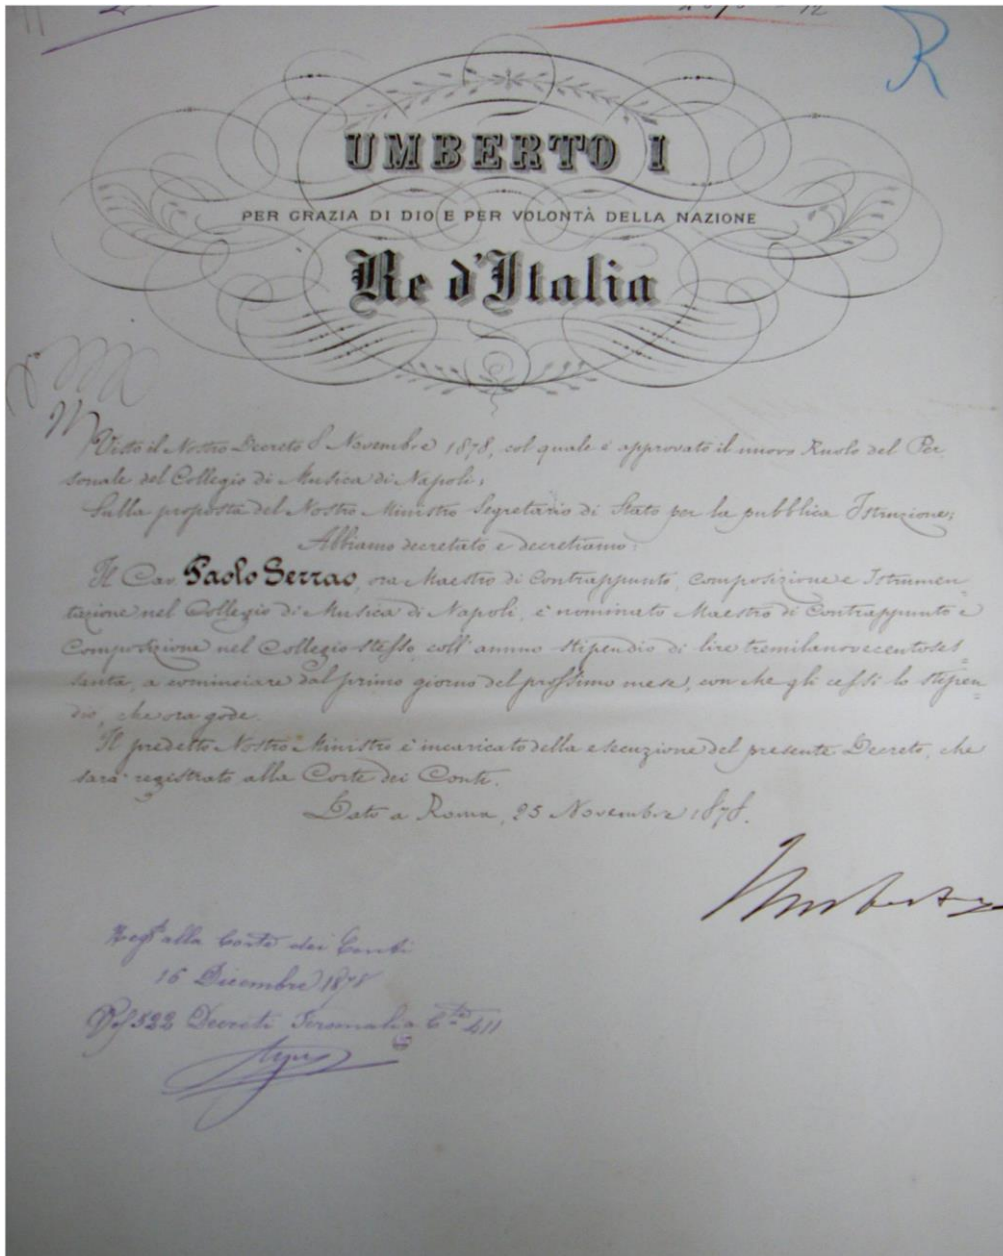 R
UMBERTO I
PER GRAZIA DI DIO E PER VOLONTÀ DELLA NAZIONE
Re d'Italia
Visto il Nostro Decreto 8 Novembre 1878, col quale è approvato il nuovo Ruolo del Per
sonale del Collegio di Musica di Napoli;
Sulla proposta del Nostro Ministro Segretario di Stato per la pubblica Istruzione;
Abbiamo decretato e decretiamo:
Il Cav. Paolo Serrao, ora Maestro di Contrappunto, Composizione e Istrumen-
tazione nel Collegio di Musica di Napoli, è nominato Maestro di Contrappunto e
Composizione nel Collegio stesso, coll'annuo stipendio di lire tremilanovecentoses=
santa, a cominciare dal primo giorno del prossimo mese, con che gli cessi lo stipen=
dio, che ora gode.
Il predetto Nostro Ministro è incaricato della esecuzione del presente Decreto, che
sarà registrato alla Corte dei Conti.
Dato a Roma, 25 Novembre 1878.
Umberto
Regto alla Corte dei Conti
16 Dicembre 1878
522 Decreti Personali a Cte 411